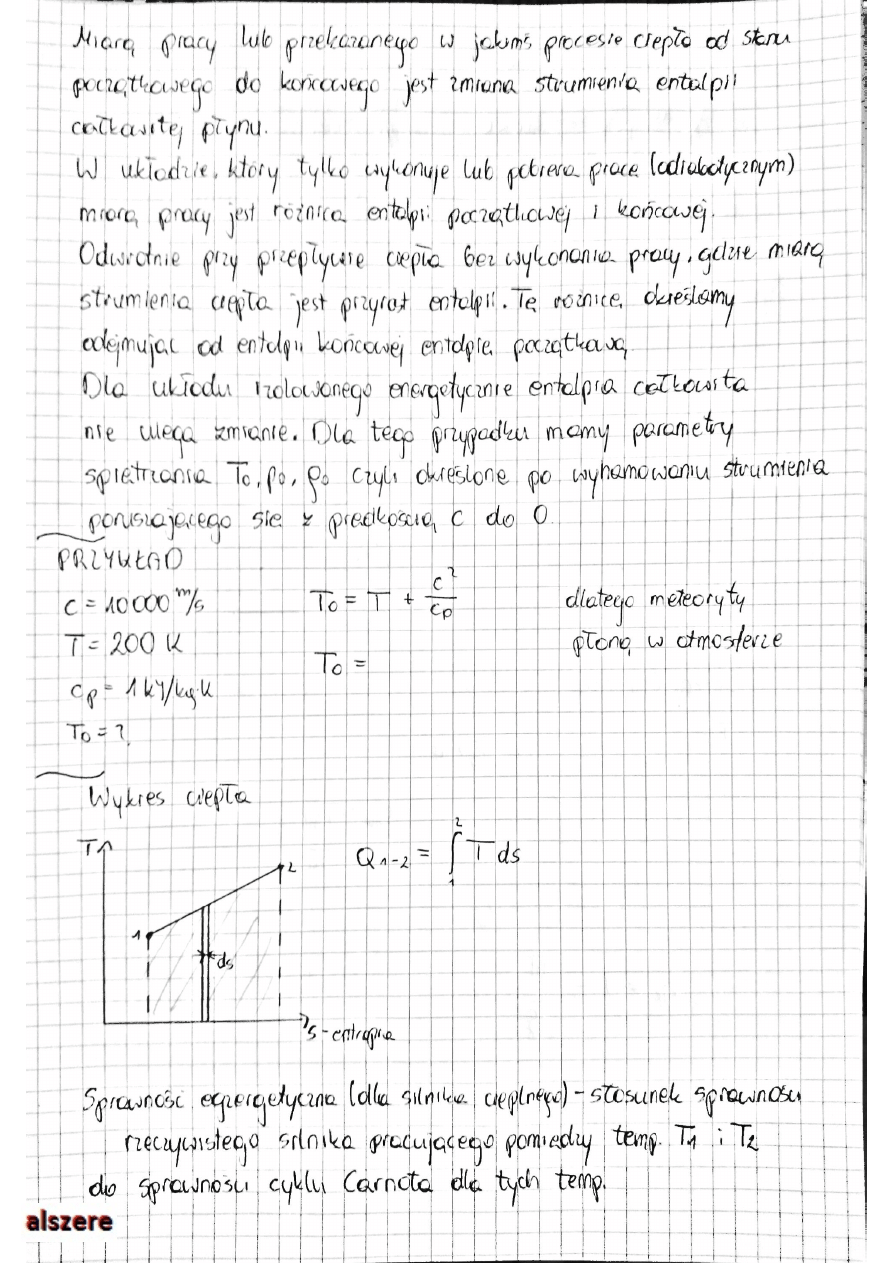 Miarą pracy lub przekazanego w jakimś procesie ciepło od stanu
początkowego do końcowego jest zmiana strumienia entalpii
całkowitej płynu.
W układzie, który tylko wykonuje lub pobiera pracę (adiabatycznym)
miarą pracy jest różnica entalpii początkowej i końcowej.
Odwrotnie przy przepływie ciepła bez wykonania pracy, gdzie miarą
strumienia ciepła jest przyrost entalpii. Tę różnicę określamy
odejmując od entalpii końcowej entalpię początkową
Dla układu izolowanego energetycznie entalpia całkowita
nie ulega zmianie. Dla tego przypadku mamy parametry
spiętrzania T₀, p₀, ρ₀ czyli określone po wyhamowaniu strumienia
poruszającego się z prędkością c do 0
PRZYKŁAD
c = 10000 m/s
T = 200 K
cp = 1 kJ/kg·K
T₀ = ?
T₀ = T + c²/cp
T₀ =
dlatego meteoryty
płoną w atmosferze
Wykres ciepła
T
1
2
ds
s - entropia
Q₁₋₂ = ∫₁² T ds
Sprawność egzergetyczna (dla silnika cieplnego) - stosunek sprawności
rzeczywistego silnika pracującego pomiędzy temp. T₁ i T₂
do sprawności cyklu Carnota dla tych temp.
alszere